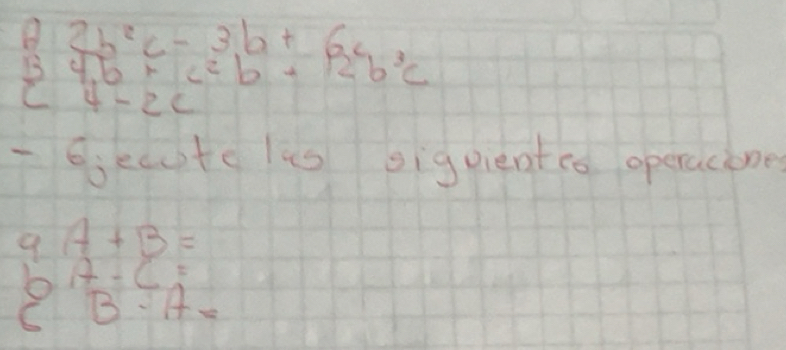 A 2b²c - 3b + 6c
B 4b + c²b - 12b²c
C 4 - 2c
- Ejecute las siguientes operaciones
a A + B =
b A - C =
c B - A =